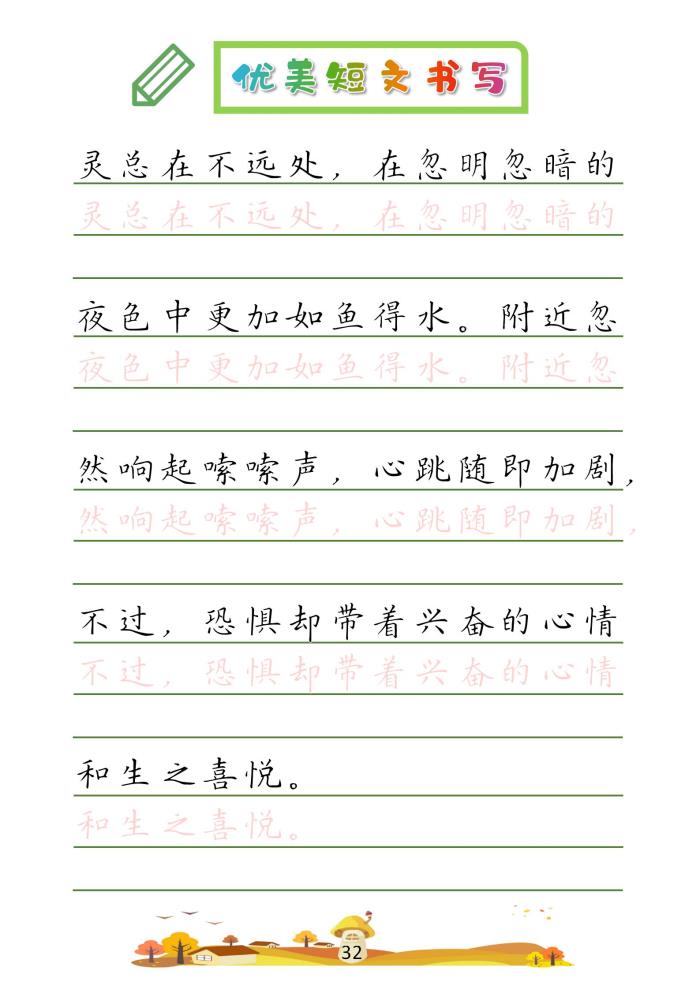 优美短文书写
灵总在不远处，在忽明忽暗的
灵总在不远处，在忽明忽暗的
夜色中更加如鱼得水。附近忽
夜色中更加如鱼得水。附近忽
然响起嗦嗦声，心跳随即加剧，
然响起嗦嗦声，心跳随即加剧，
不过，恐惧却带着兴奋的心情
不过，恐惧却带着兴奋的心情
和生之喜悦。
和生之喜悦。
32